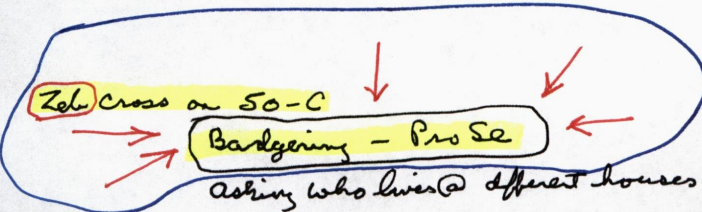 Zeb Cross on 50-C
Badgering - Pro Se
asking who lives @ different houses